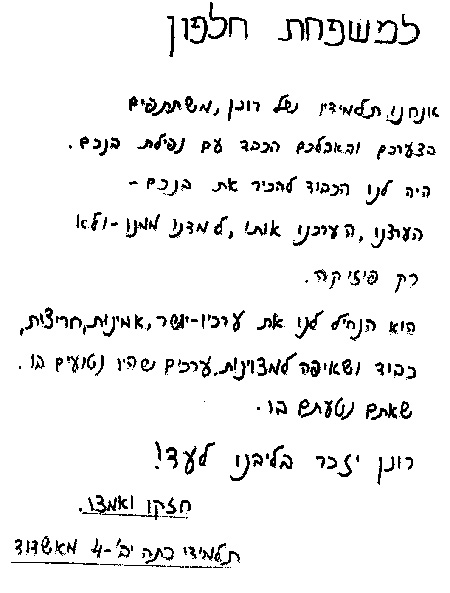 למשפחת חלפון
אנחנו, תלמידיו של רונן, משתתפים
בצערכם ובאבלכם הכבד עם נפילת בנכם.
היה לנו הכבוד להכיר את בנכם -
הערצנו, הערכנו אותו, למדנו ממנו - ולא
רק פיזיקה.
הוא הנחיל לנו את ערכיו - יושר, אמינות, חריצות,
כבוד ושאיפה למצוינות, ערכים שהיו נטועים בו.
שאתם נטעתם בו.
רונן יזכר בליבנו לעד!
חזקו ואמצו.
תלמידי כתה יב'-4 מאשדוד